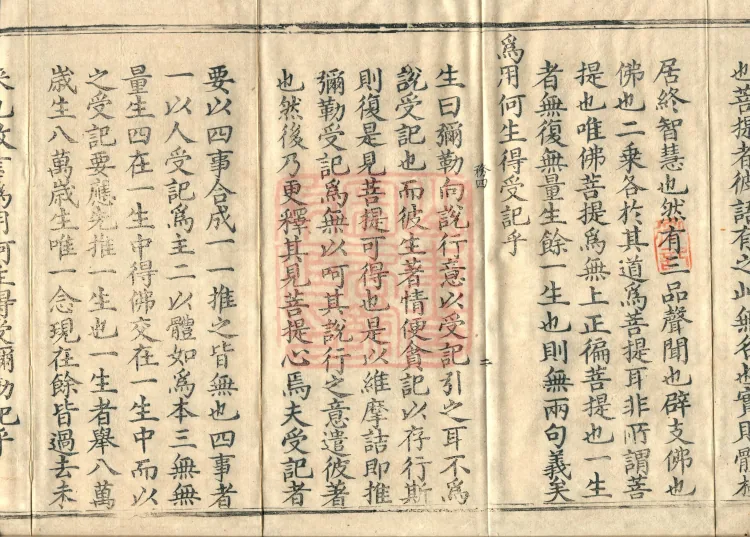 也菩提者彼語有之此無名也實則體
居終智慧也然有三品聲聞也辟支佛也
佛也二乘各於其道爲菩提耳非所謂菩
提也唯佛菩提爲無上正徧菩提也一生
者無復無量生餘一生也則無兩句義矣
爲用何生得受記乎
四
二
生曰彌勒向說行意以受記引之耳不爲
說受記也而彼生著情便貪記以存行斯
則復是見菩提可得也是以維摩詰即推
彌勒受記爲無以呵其說行之意遣彼著
也然後乃更釋其見菩提心焉夫受記者
要以四事合成一一推之皆無也四事者
一以人受記爲主二以體如爲本三無無
量生四在一生中得佛交在一生中而以
之受記要應先推一生也一生者舉八萬
歲生八萬歲生唯一念現在餘皆過去未
來也故言爲用何生得受彌勒記乎